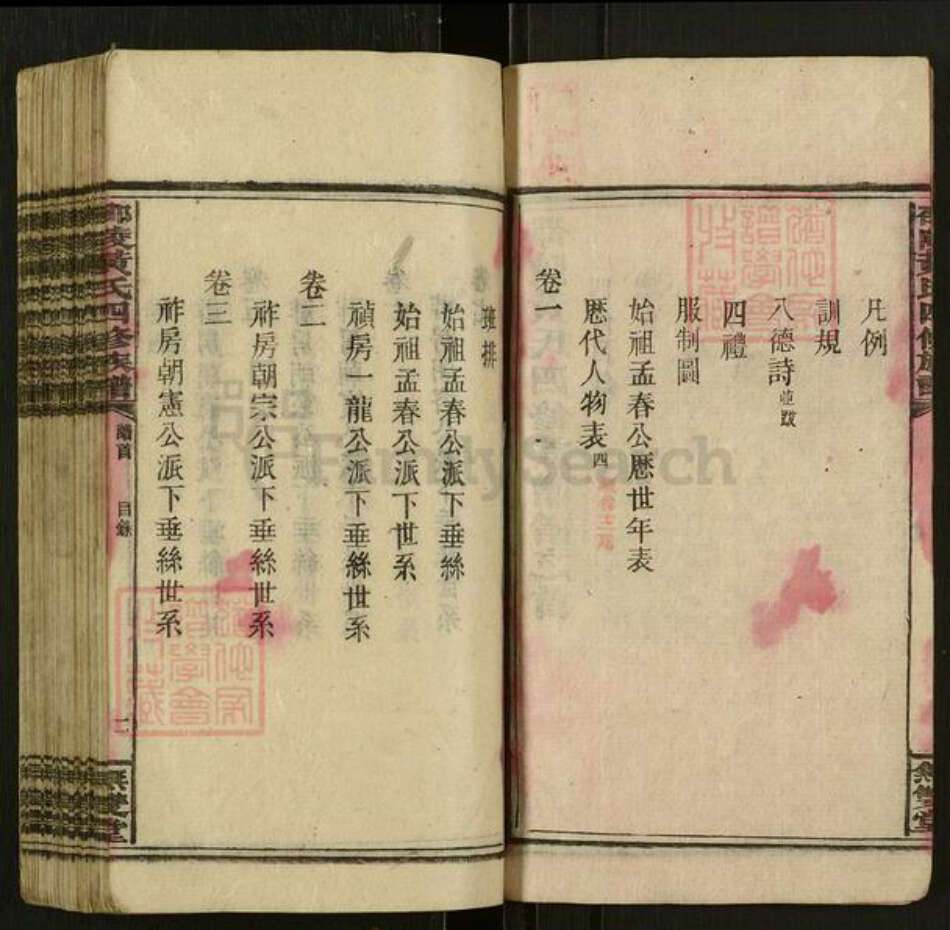 凡例
訓規
八德詩並跋
四禮
服制圖
始祖孟春公厯世年表
厯代人物表四
卷一
班排
始祖孟春公派下垂絲
始祖孟春公派下世系
禎房一龍公派下垂絲世系
卷二
祚房朝宗公派下垂絲世系
卷三
祚房朝憲公派下垂絲世系
邵陵黃氏四修族譜
譜首
目錄
二
無雙堂
邵陵黃氏四修族譜
無雙堂
FamilySearch